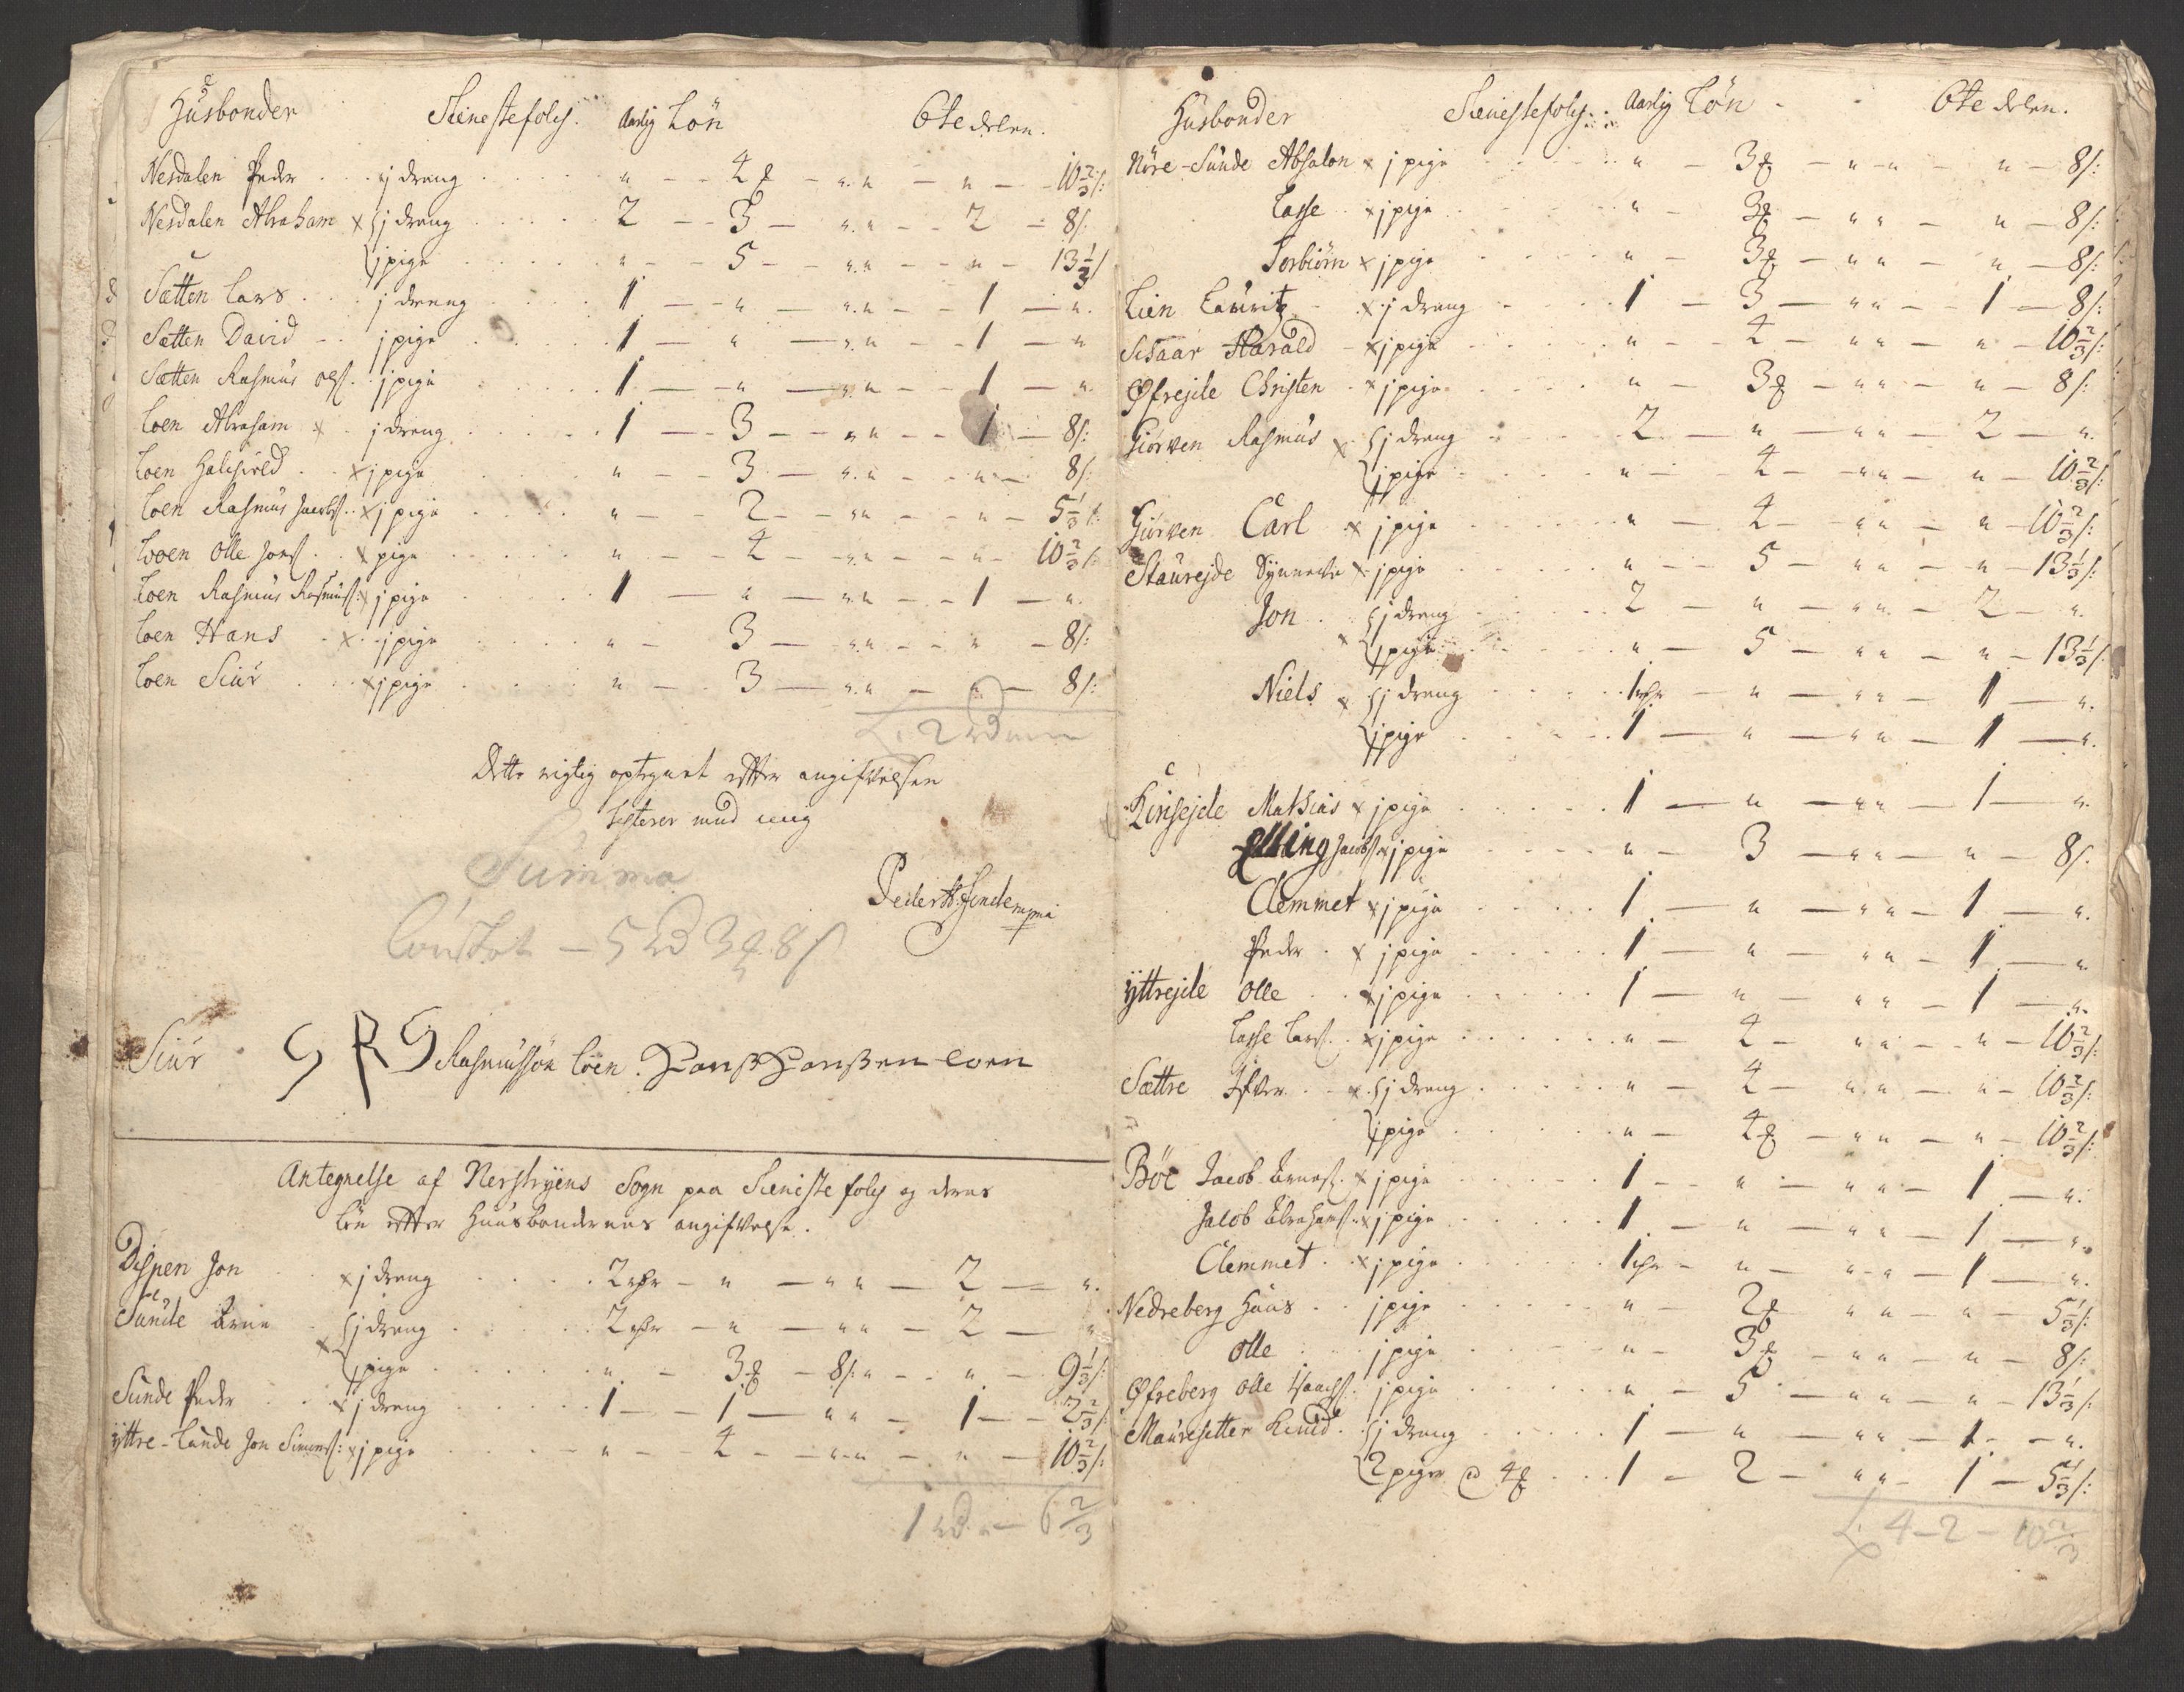 Husbonder Tienestefolch. Aarlig Løn 6te delen.
Nesdalen Peder . . . j dreng . . . . . " - - 4 ß - ". " - " - - 10 2/3 s:
Nesdalen Abraham x { j dreng . . . . . 2 - - 3 - ". " - - 2 - 8 s:
{ j pige . . . . . " - - 5 - - ". " - - " - 13 1/3 s
Sætten Lars . . . j dreng . . . . 1 - - " - - ". " - - 1 - ".
Sætten David - . . j pige . . . . . 1 - " - ". " - - 1 - "
Sætten Rasmus Ols: . j pige . . . . . 1 - - " - ". " - - 1 - "
Loen Abraham x . j dreng . . . . . 1 - - 3 - - " " - - 1 - 8 s:
Loen . . x j pige . . . . . " - - 3 - ". " - - " - 8 s:
Loen Rasmus Jacobs: . . x j pige . . . . " - - 2 - - " " - - " - 5 1/3 s:
Looen Olle Jons: . . x pige . . . . . " - - 4 - - ". " - - " - 10 2/3 s:
Loen Rasmus Rasmuss: x j pige . . . . . 1 - " - ". " - - 1 - ".
Loen Hans . x . j pige . . . . . " - 3 - ". " - - " - 8 s:
Loen Siur . . . x j pige . . . . . " - - 3 - ". " - " - 8 s:
Dette rigtig optegnet efter angifvelsen
testerer med mig
Summa
5 rd 3 ß 8 s
Siur S R S Rasmussøn Loen. Hanß Hanßen Loen
Antegnelse af Nerstryens Sogn paa Tieniste folch og deres
Løn efter Huusbondernes angifvelse.
Dispen Jon . . x j dreng . . . . 2 rdr - " - " " - 2 - ".
Sunde Arne . x { j dreng . . . . . 2 rdr - " - " " - 2 - "
{ j pige . . . . . " - 3 ß - 8 s: " - - " - 9 1/3 s:
Sunde Peder . . x j dreng . . . . . 1 - - 1 - " " - 1 - - 2 2/3 s:
Yttre-Sunde Jon Simens: x j pige . . . . . " - - 4 - - " " - " - 10 2/3 s:
1 rd " - 6 2/3
Husbonder Tienestefolch: . Aarlig Løn - . 6te delen.
Nore-Sunde Absalon x j pige . . . . . " - 3 ß - " - " - " - 8 s:
Lasse . . x j pige . . . . . " - 3 ß - " " - " - 8 s:
Torbiørn x j pige . . . . . " - 3 ß - " " - " - 8 s:
Lien Lauritz . x j dreng . . . . 1 - 3 - " " - - 1 - 8 s:
Harald - x j pige . . . . . " - - 4 - " " - " - 10 2/3 s:
Øfrejde Christen . x j pige . . . . . " - 3 ß - " " - " - 8 s:
Giørven Rasmus x { j dreng . . . . . 2 - " - " " - 2 - ".
{ j pige . . . . . " - - 4 - " " - " - 10 2/3 s:
Giørven Carl x j pige . . . . . " - 4 - " " - " - 10 2/3 s:
Staurejde Synneve x j pige . . . . . " - - 5 - " " - " - 13 1/3 s:
Jon . { j dreng . . . . . 2 - " - " " - 2 - ".
x { j pige . . . . . " - 5 - " " - " - 13 1/3 s.
Niels x { j dreng . . . . . 1 rdr - " - " " - 1 - ".
{ j pige . . . . . 1 - " - " " - 1 - ".
Kirsejde Mathias x j pige . . . . . 1 - " - " " - 1 - ".
Elling Jacobs: x j pige . . . . . " - 3 - " " - " - 8 s.
Clemmet x j pige . . . . . 1 - " - " " - 1 - ".
Peder . x j pige . . . . . 1 - " - " " - 1 - "
Yttrejde Olle . . x j pige . . . . . 1 - " - " " - 1 - ".
Lasse Lars: . x j pige . . . . . " - 4 - " " - " - 10 2/3 s:
Sættre Ifver . . x . { j dreng . . . . . " - 4 - " " - " - 10 2/3 s:
{ j pige . . . . . " - 4 ß - " " - " - 10 2/3 s:
Bøe Jacob Arnes: x j pige . . . . . 1 - - " - " " - 1 - ".
Jacob Abrahams: x j pige . . . . . 1 - " - " " - 1 - ".
Clemmet . . x j pige . . . . . 1 rdr - " - " " - 1 - ".
Nedreberg Hans . . j pige . . . . . " - 2 ß - " " - " - 5 1/3 s:
Olle . . . j pige . . . . . " - 3 ß - " " - " - 8 s:
Øfreberg Olle Isachs: . j pige . . . . . " - 5 - " " - " - 13 1/3 s:
Mauresetter Knud . . { j dreng . . . . . 1 - " - " " - 1 - - ".
{ 2 piger @ 4 ß . . . 1 - 2 - " " - 1 - 5 1/3 s:
4 - 2 - 10 2/3